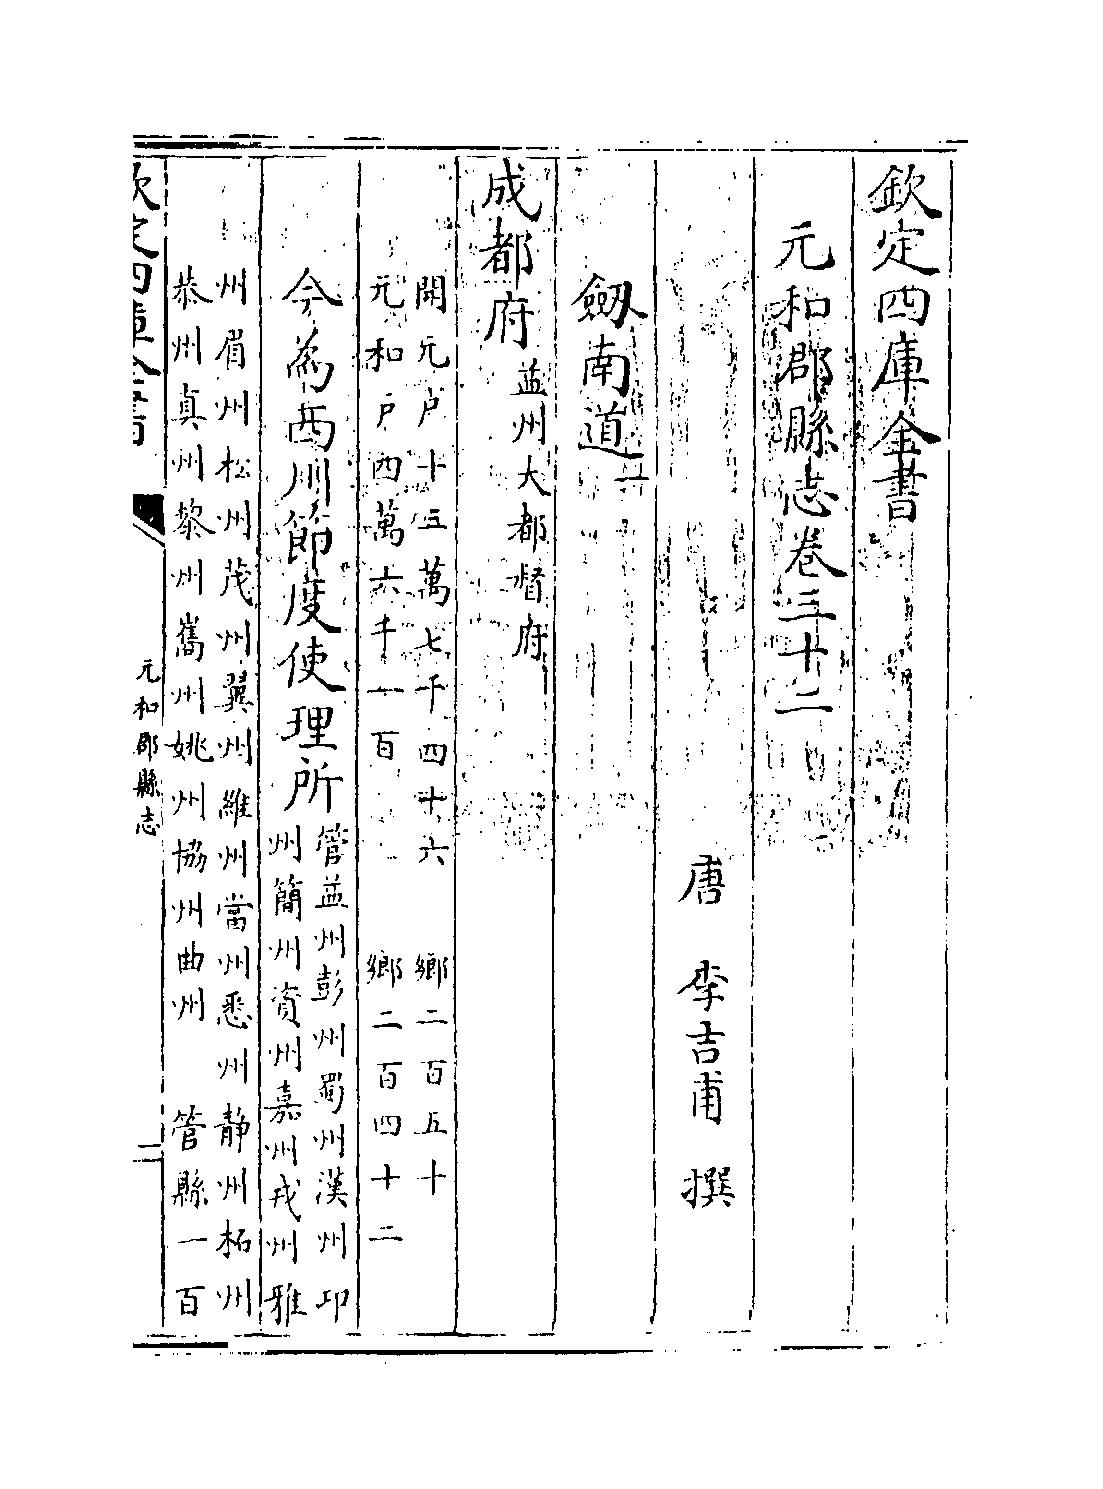 欽定四庫全書
元和郡縣志卷三十二
唐 李吉甫 撰
劔南道一
成都府益州大都督府
開元户十三萬七千四十六 鄉二百五十
元和户四萬六千一百 鄉二百四十二
今為西川節度使理所
管益州彭州蜀州漢州卭
州簡州資州嘉州戎州雅
州眉州松州茂州翼州維州當州悉州静州柘州
恭州真州黎州嶲州姚州協州曲州 管縣一百
欽定四庫全書
元和郡縣志